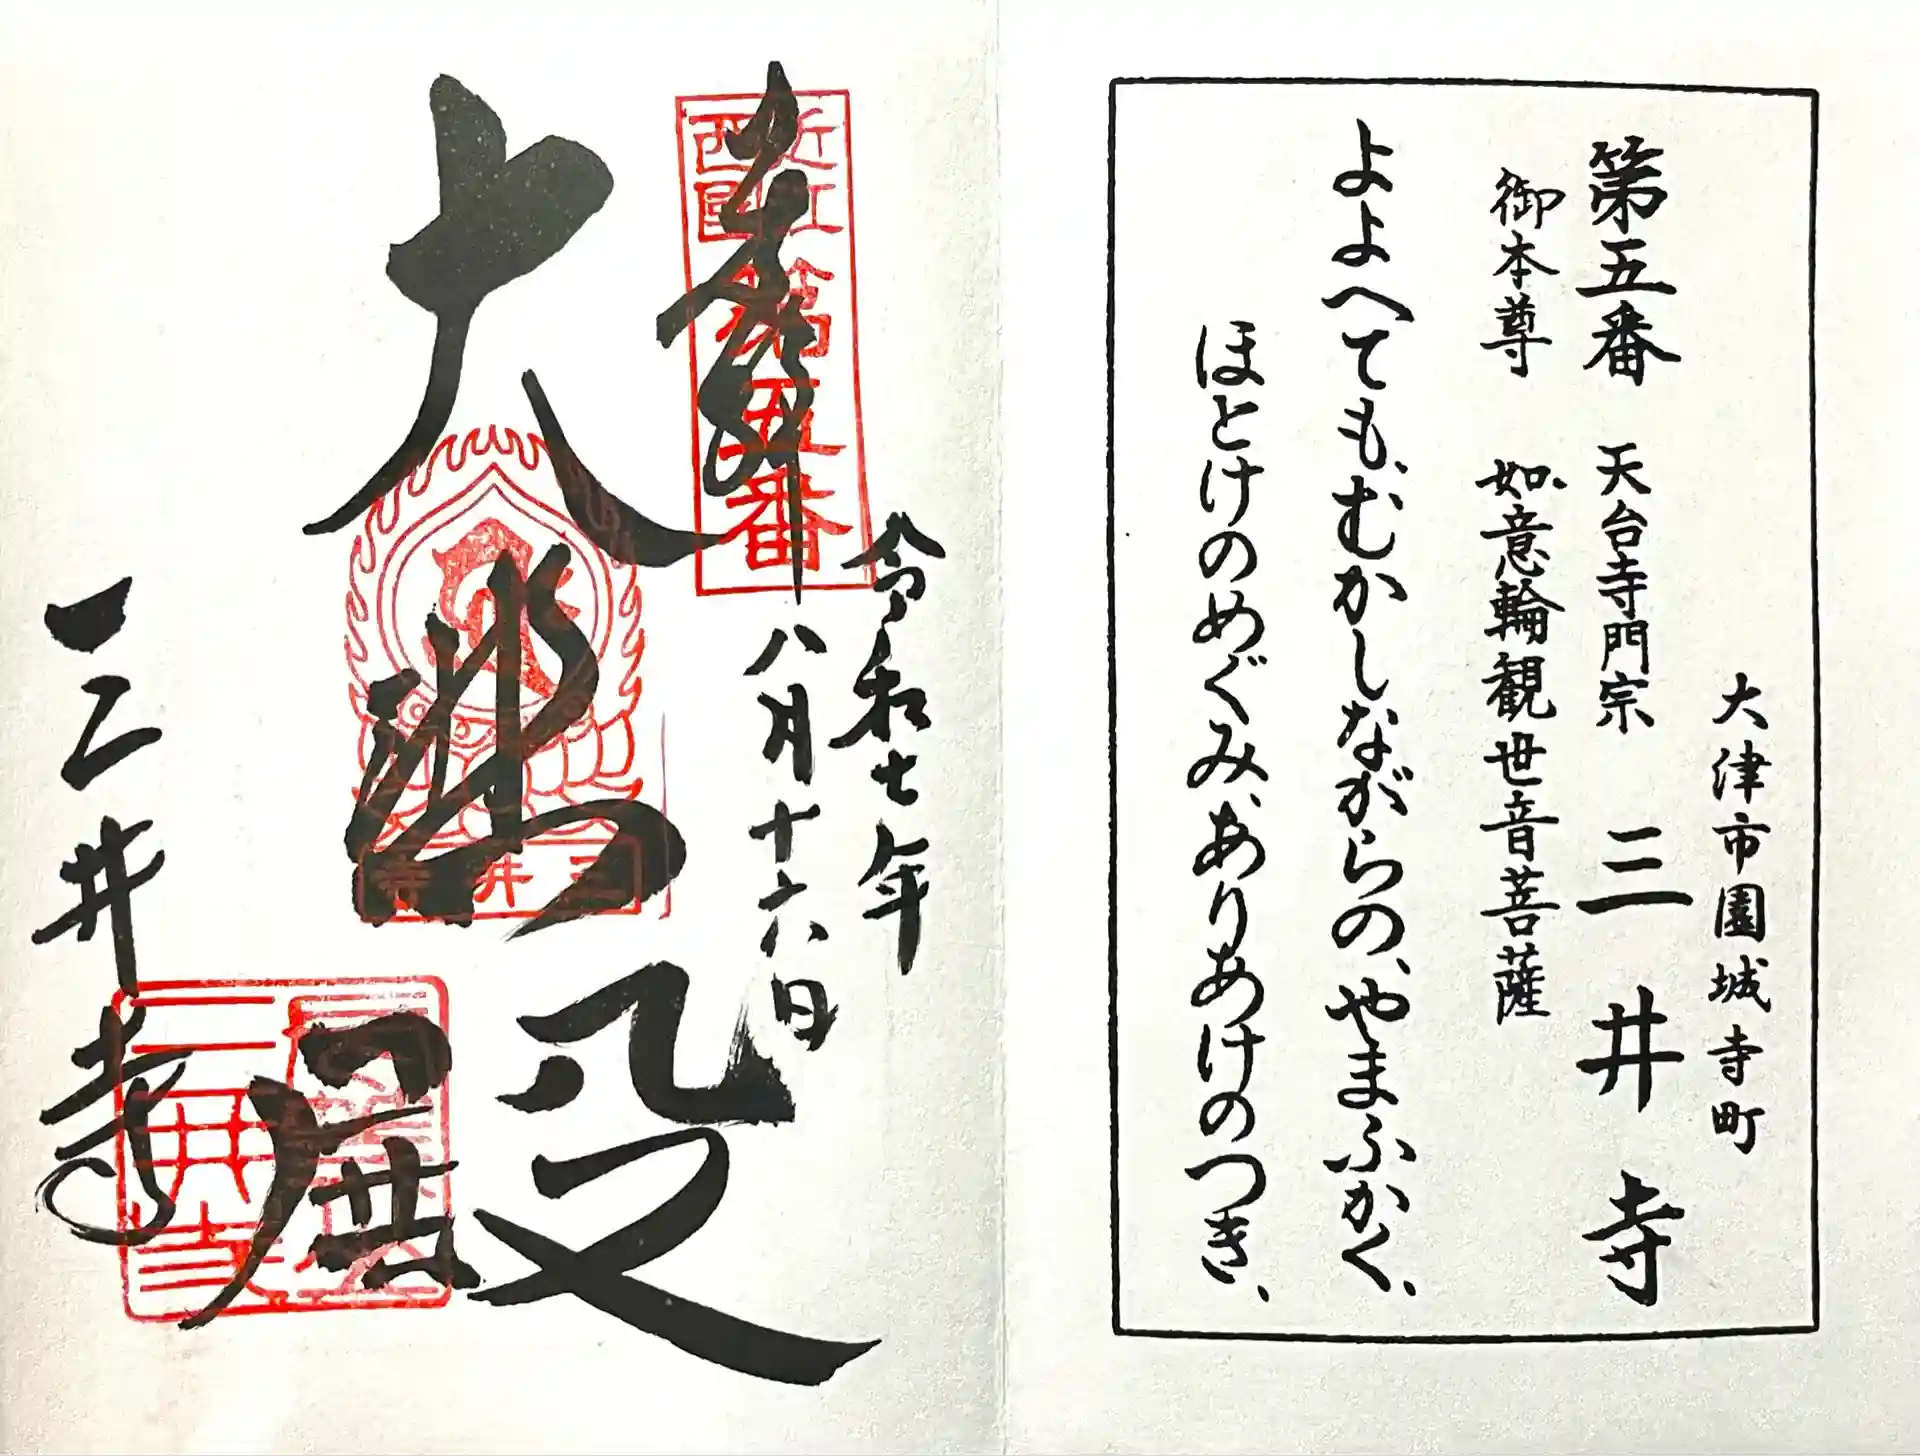 大津市園城寺町
第五番 天台寺門宗 三井寺
御本尊 如意輪観世音菩薩
よよへても、むかしながらの、やまふかく、
ほとけのめぐみ、ありあけのつき、
令和七年
八月十六日
奉拝
近江西国第五番
大悲殿
三井寺
三井寺
三井寺